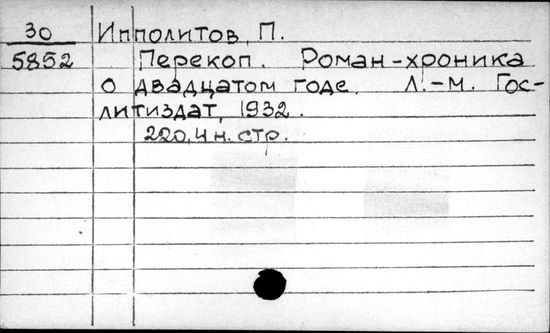 30 Ипполитов, П.
5852 Перекоп. Роман-хроника
о двадцатом годе. Л.-М. Гос-
литиздат, 1932.
220, 4 н. стр.